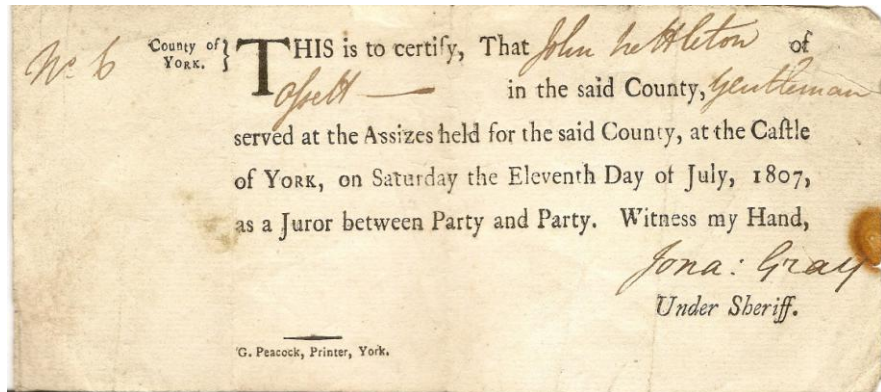 No 6 County of YORK. } THIS is to certify, That John Nettleton of
Ossett — in the said County, Gentleman
served at the Assizes held for the said County, at the Caſtle
of YORK, on Saturday the Eleventh Day of July, 1807,
as a Juror between Party and Party. Witness my Hand,
Jona: Gray
Under Sheriff.
G. Peacock, Printer, York.